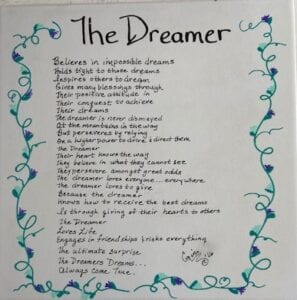 The Dreamer
Believes in impossible dreams
Holds tight to those dreams
Inspires others to dream
Gives many blessings through
Their positive attitude in
Their conquest to achieve
Their dreams
The dreamer is never dismayed
At the mountains in the way
But perseveres by relying
On a higher power to drive & direct them
The Dreamer
Their heart knows the way
They believe in what they cannot see
They persevere amongst great odds
The dreamer loves everyone... everywhere
The dreamer loves to give
Because the dreamer
Knows how to receive the best dreams
Is through giving of their hearts to others
The Dreamer
Loves Life
Engages in friendships & risks everything
The ultimate surprise
The Dreamers Dreams...
Always come True.